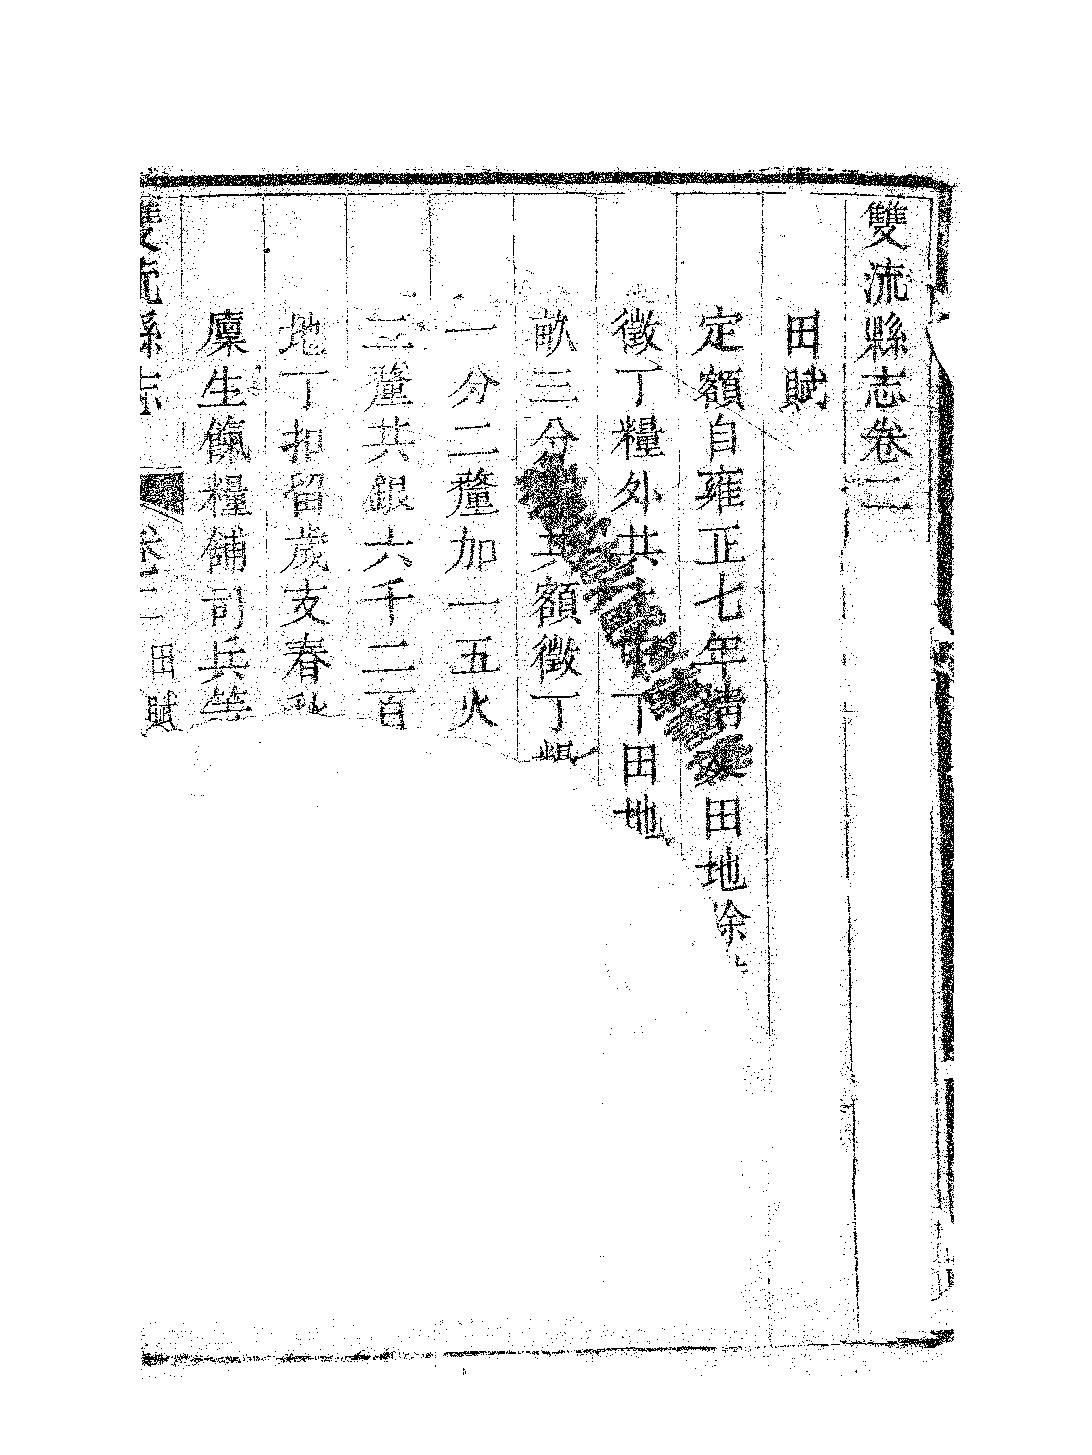 雙流縣志卷二
田賦
定額自雍正七年清丈田地除
徵丁糧外共下田地
畝三分共額徵丁糧
一分二釐加一五火
三釐共銀六千二百
地丁扣留歲支春秋
廩生餼糧舖司兵等
雙流縣志 卷二 田賦